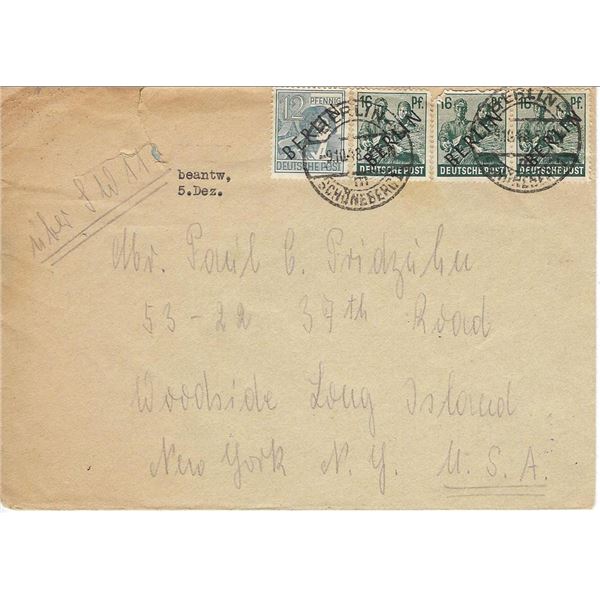 12 PFENNIG 16 Pf. 16 Pf. 16 Pf.
BERLIN BERLIN BERLIN BERLIN
DEUTSCHE POST DEUTSCHE POST DEUTSCHE POST DEUTSCHE POST
BERLIN BERLIN
SCHÖNEBERG
über
beantw,
5.Dez.
Mr. Paul C. Pridzuhn
53-22 37th Road
Woodside Long Island
New York N.Y. U.S.A.